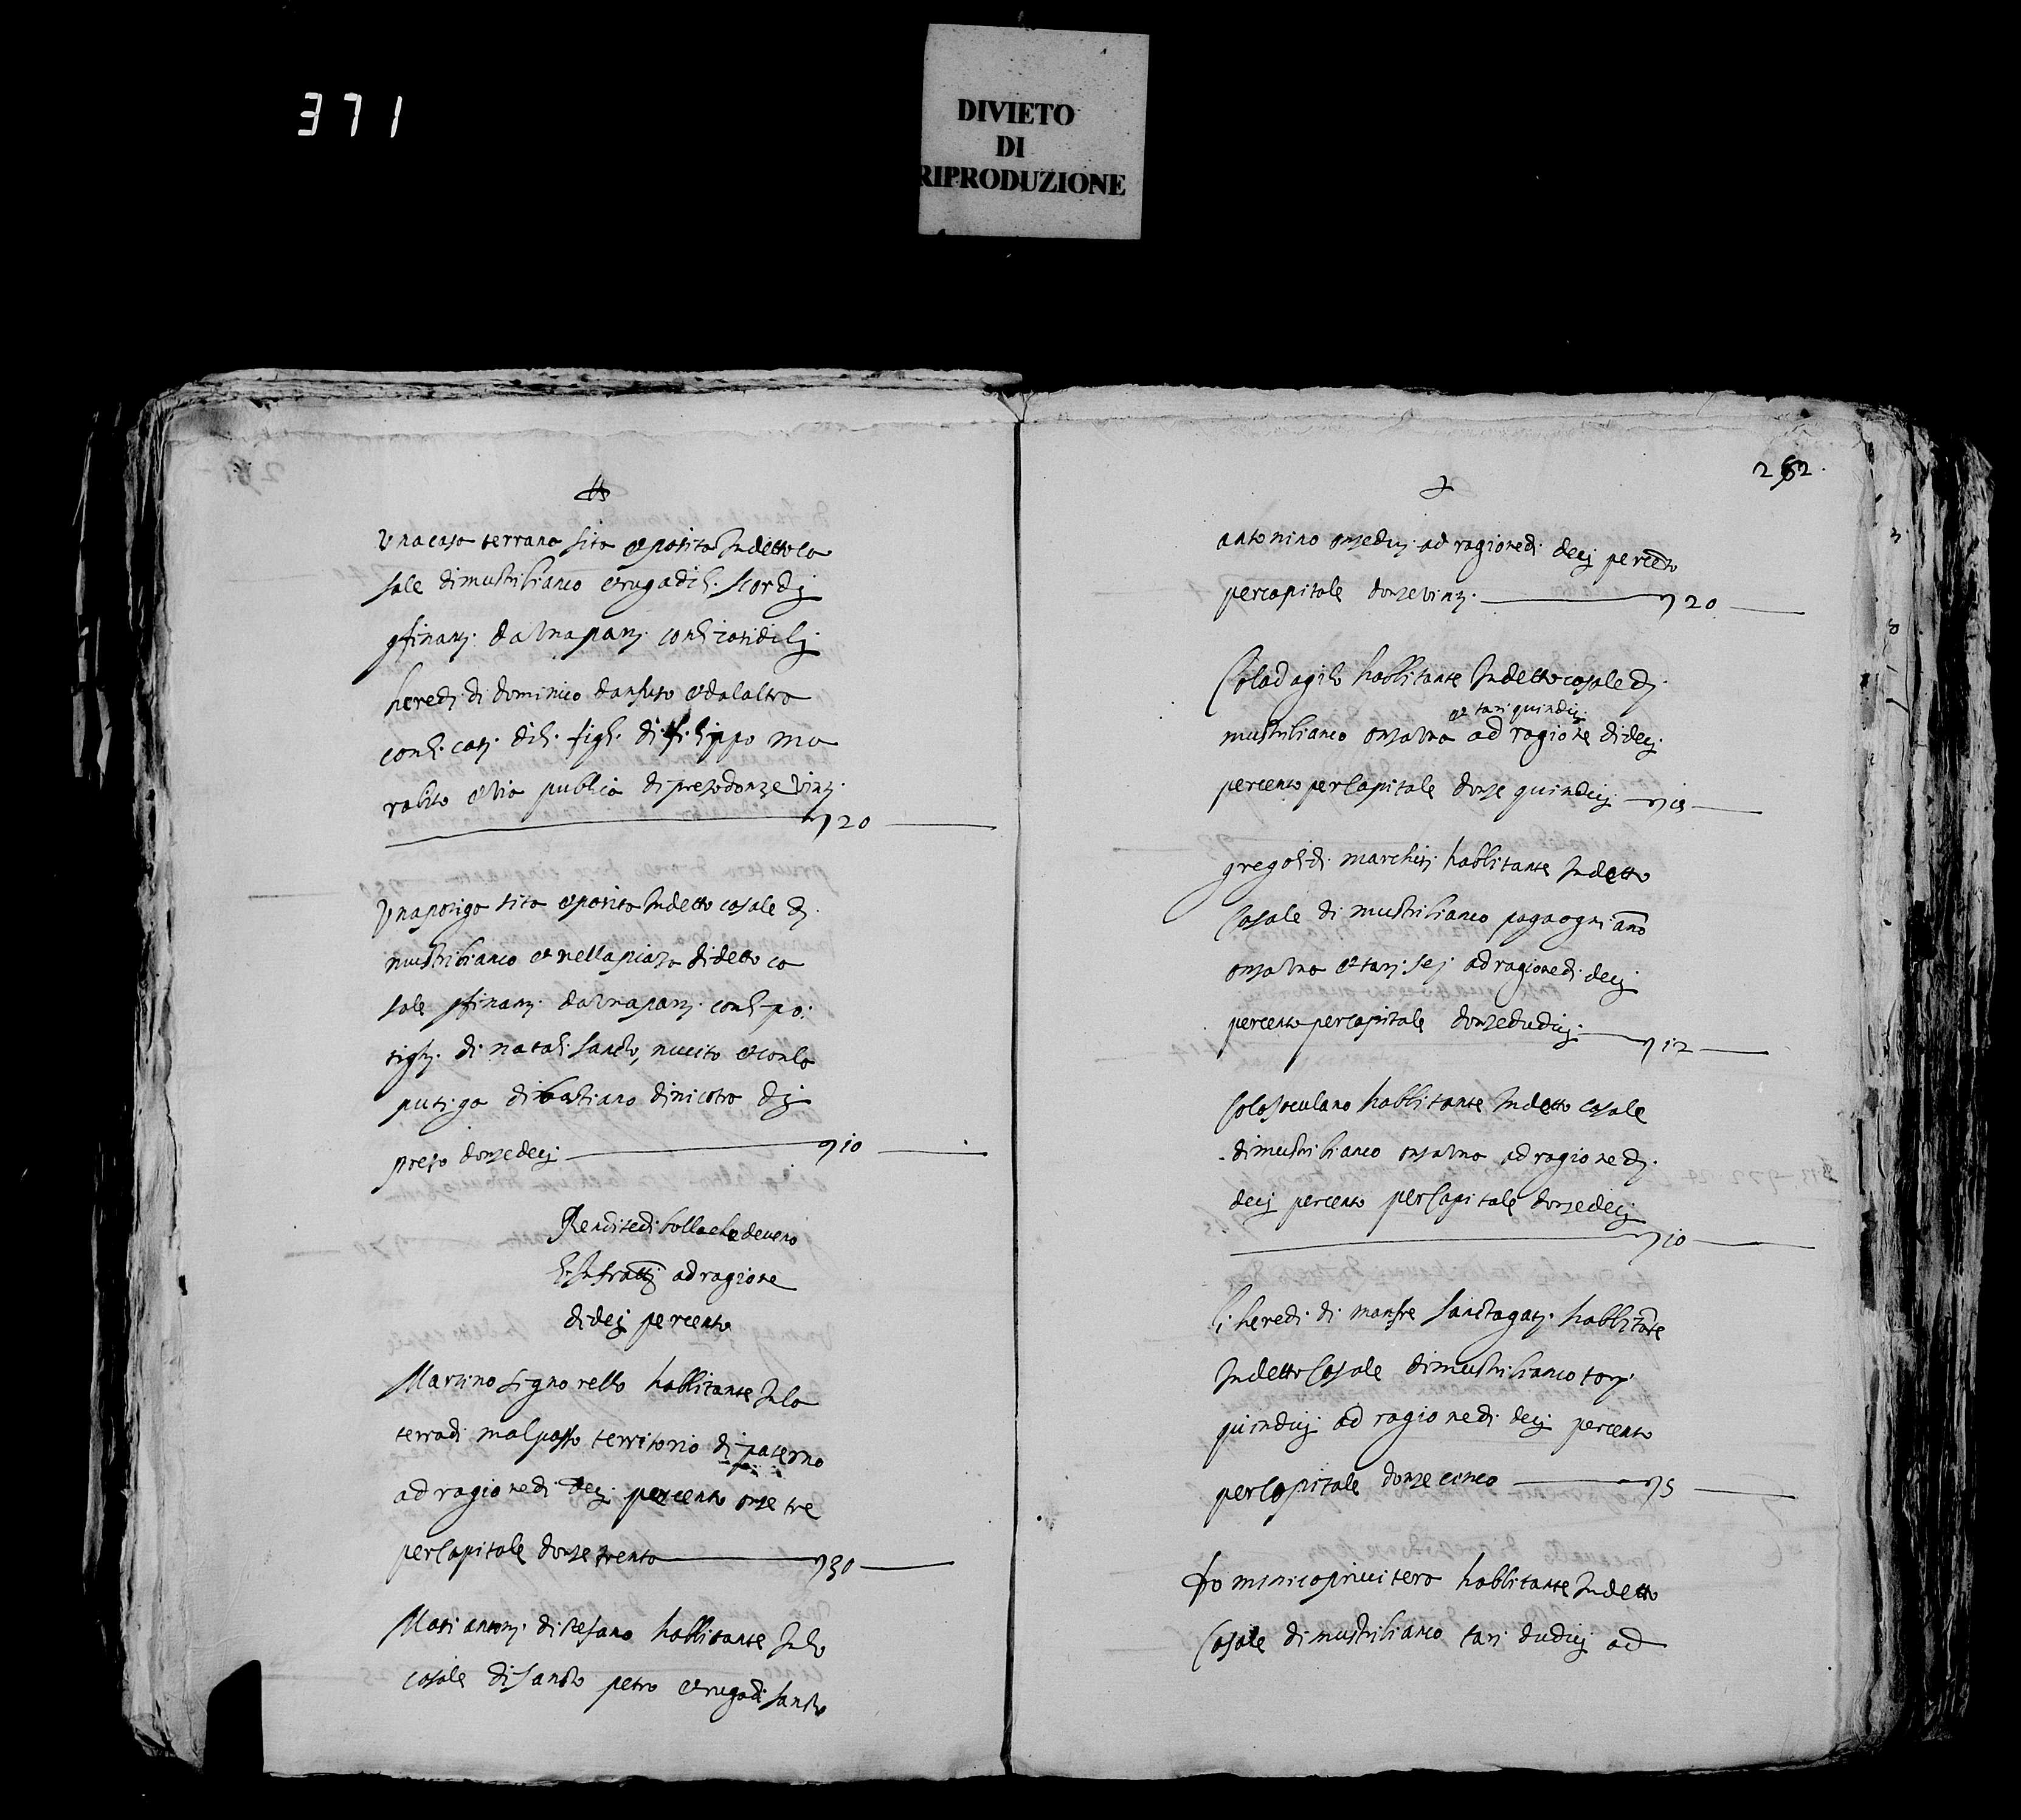 371
DIVIETO
DI
RIPRODUZIONE
Una casa terrana sita et posita In detto ca
sale di mustrilianco et ruga di li scordij
finanti da una parti con li casi di li
heredi di dominico danfuso et dalaltro
con li casi di li figli di filippo ma
rabito et via publica di prezo donze vinti
20
Una potiga sita et posita In detto casale di
mustrilianco et nella piaza di detto ca
sale finanti da una parti con li po
tighi di natali sancto, nucito et con la
putiga di bastiano di nicotra di
prezo donze deci 10
Rendite di bolla che deveno
l'infratti ad ragione
di deci per cento
Martino signorello habbitante In la
terra di malpasso territorio di paterno
ad ragione di deci per cento onze tre
per Capitale donze trenta 30
Masi antoni di stefano habbitante In lo
casale di sancto petro et ruga di sancto
262
antonino onze duj ad ragione di deci per cento
per capitale donze vinti 20
Cola d agilo habbitante In detto casale di
et tari quindici
mustrilianco onza una ad ragione di deci
per cento per Capitale donze quindici 15
gregoli di marchisi habbitante In detto
Casale di mustrilianco paga ogni anno
onza una et tari sei ad ragione di deci
per cento per capitale donze dudici 12
Cola sculano habbitante In detto Casale
di mustrilianco onza una ad ragione di
deci per cento per Capitale donze deci
10
Li heredi di manfre sanctagati habbitante
In detto Casale di mustrilianco tari
quindici ad ragione di deci per cento
per Capitale donze cinco 5
Dominico privitera habbitante In detto
Casale di mustrilianco tari dudici ad